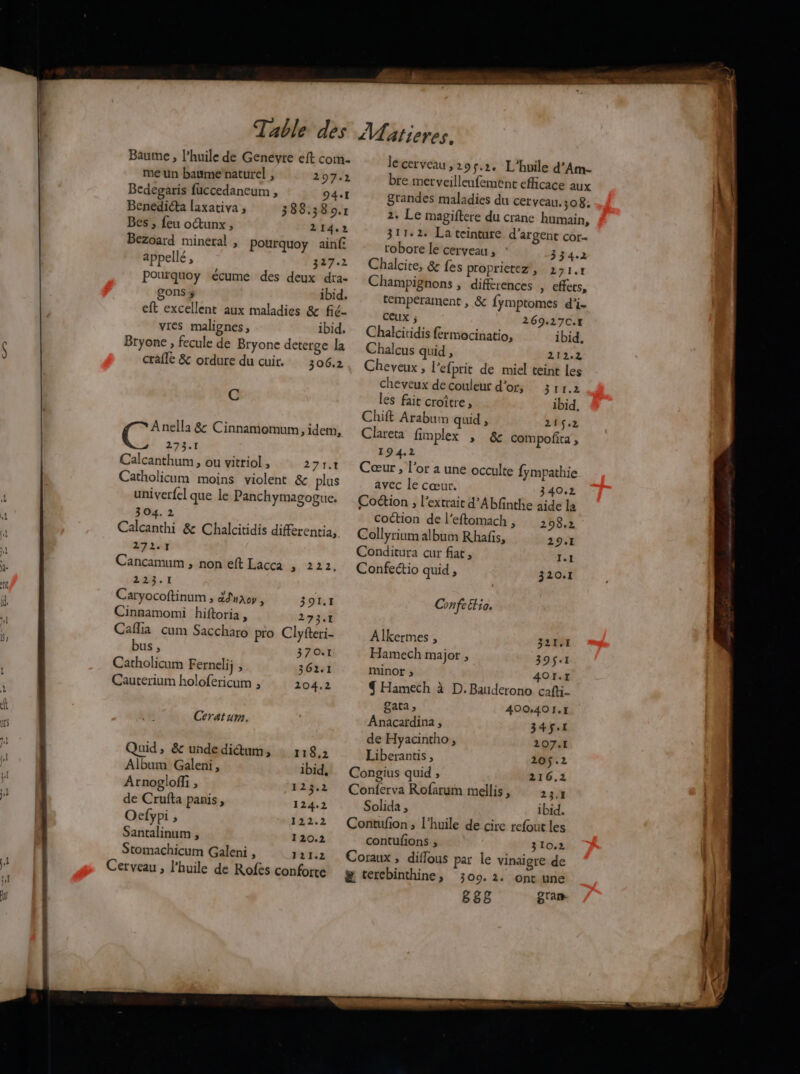 Table des Matieres.
Baume, l'huile de Genévre eſt com-
me un baume naturel, 297.2
Bedegaris ſuccedaneum, 94.1
Benedicta laxativa, 388.389.1
Bes, ſeu octunx, 214.2
Bezoard mineral, pourquoy ainſi
appellé, 327.2
pourquoy écume des deux dra-
gons, ibid.
eſt excellent aux maladies & fié-
vres malignes, ibid.
Bryone, fecule de Bryone deterge la
craſſe & ordure du cuir. 306.2
C
CAnella & Cinnamomum, idem,
273.1
Calcanthum, ou vitriol, 271.1
Catholicum moins violent & plus
univerſel que le Panchymagogue.
304.2
Calcanthi & Chalcitidis differentia,
272.1
Cancamum, non eſt Lacca, 222.
223.1
Caryocoſtinum, 391.1
Cinnamomi hiſtoria, 273.1
Caſſia cum Saccharo pro Clyſteri-
bus, 370.1
Catholicum Fernelij, 362.1
Cauterium holoſericum, 204.2
Ceratum.
Quid, & unde dictum, 118.2
Album Galeni, ibid.
Arnogloſſi, 123.2
de Cruſta panis, 124.2
Oeſypi, 122.2
Santalinum, 120.2
Stomachicum Galeni, 121.2
Cerveau, l'huile de Roſes conforte
le cerveau, 295.2. L'huile d'Am-
bre merveilleuſement efficace aux
grandes maladies du cerveau. 308.
2. Le magiſtere du crane humain,
311.2. La teinture d'argent cor-
robore le cerveau, 334.2
Chalcite, & ſes proprietez, 271.1
Champignons, differences, effets,
temperament, & ſymptomes d'i-
ceux, 269.270.1
Chalcitidis fermocinatio, ibid.
Chalcus quid, 212.2
Cheveux, l'eſprit de miel teint les
cheveux de couleur d'or, 311.2
les fait croître, ibid.
Chiſt Arabum quid, 215.2
Clareta ſimplex, & compoſita,
194.2
Cœur, l'or a une occulte ſympathie
avec le cœur. 340.2
Coction, l'extrait d'Abſinthe aide la
coction de l'eſtomach, 298.2
Collyrium album Rhaſis, 29.1
Conditura cur fiat, 1.1
Confectio quid, 320.1
Confectio.
Alkermes, 321.1
Hamech major, 395.1
minor, 401.1
¶ Hamech à D. Bauderono caſti-
gata, 400.401.1
Anacardina, 345.1
de Hyacintho, 207.1
Liberantis, 205.2
Congius quid, 216.2
Conſerva Roſarum mellis, 23.1
Solida, ibid.
Contuſion, l'huile de cire reſout les
contuſions, 310.2
Coraux, diſſous par le vinaigre de
terebinthine, 309.2. ont une
ggg gran-